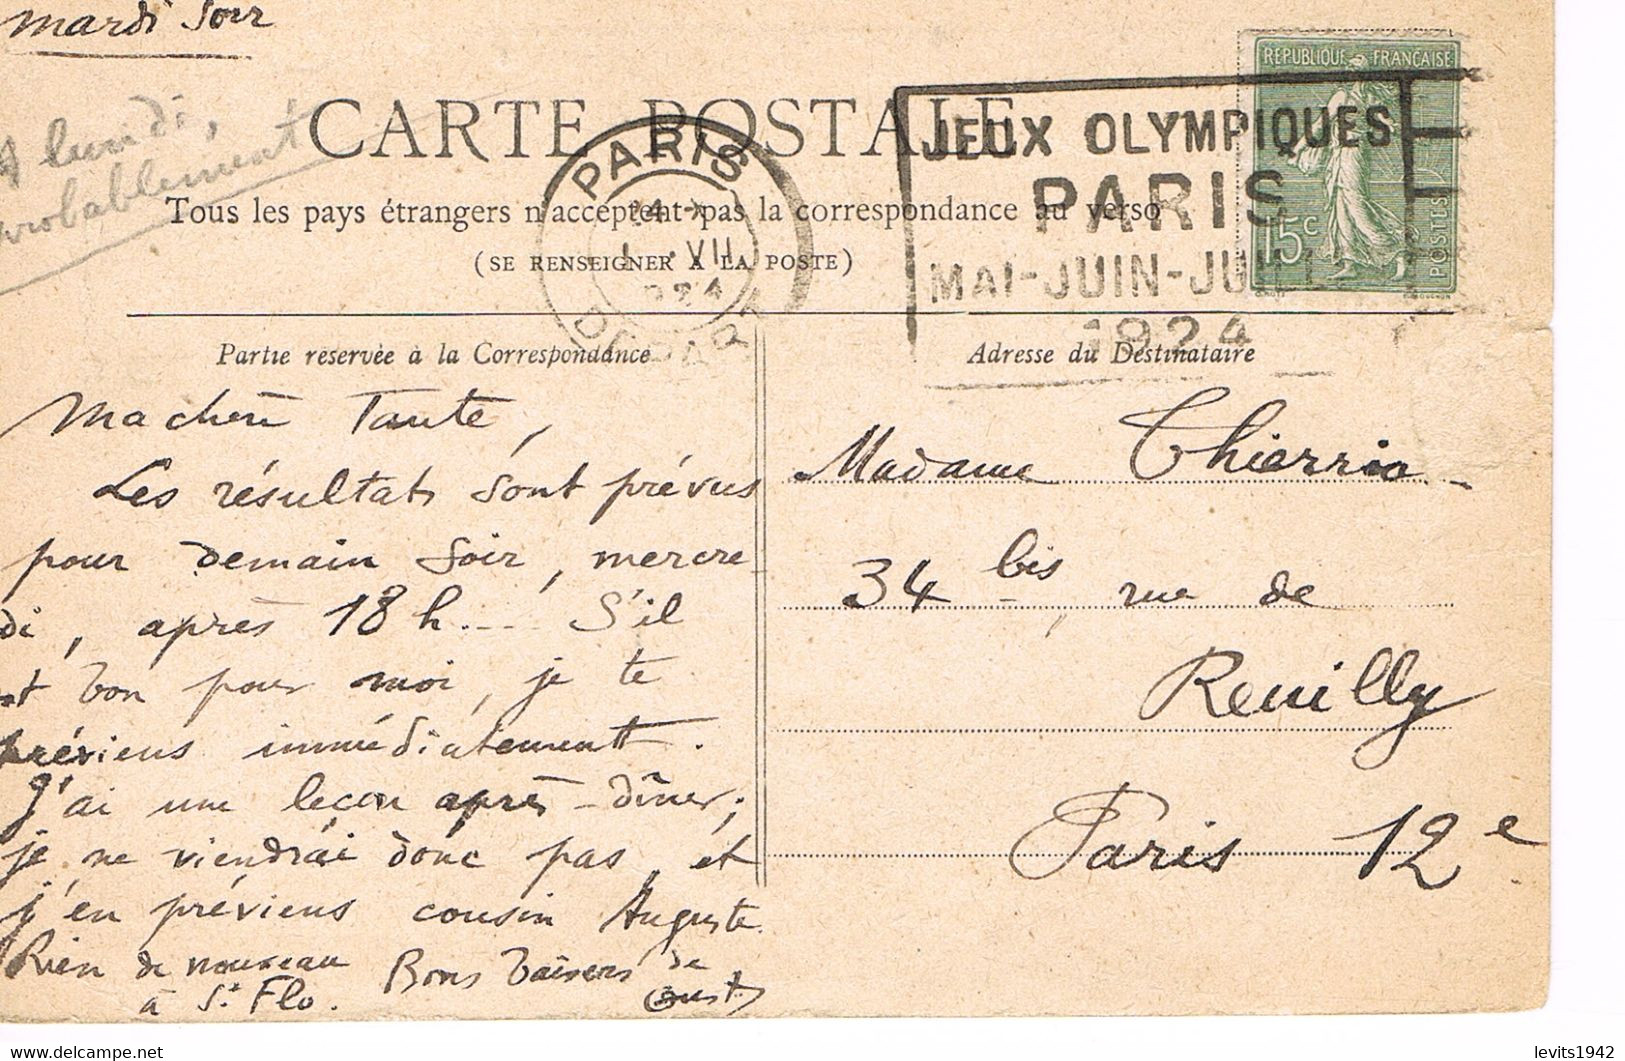 mardi soir
A lundi,
probablement
CARTE POSTALE
Tous les pays étrangers n'acceptent pas la correspondance au verso
(SE RENSEIGNER A LA POSTE)
PARIS
14
VII
924
DEPART
JEUX OLYMPIQUES
PARIS
MAI-JUIN-JUILL
1924
REPUBLIQUE FRANÇAISE
15c
POSTES
Partie réservée à la Correspondance
Ma chère Tante,
Les résultats sont prévus
pour demain soir, mercre
di, après 18 h... S'il
est bon pour moi, je te
préviens immédiatement.
J'ai une leçon après-dîner;
je ne viendrai donc pas, et
j'en préviens cousin Auguste.
Rien de nouveau
à St Flo.
Bons baisers de
Adresse du Destinataire
Madame Thierrio
34 bis, rue de
Reuilly
Paris 12e
levits1942